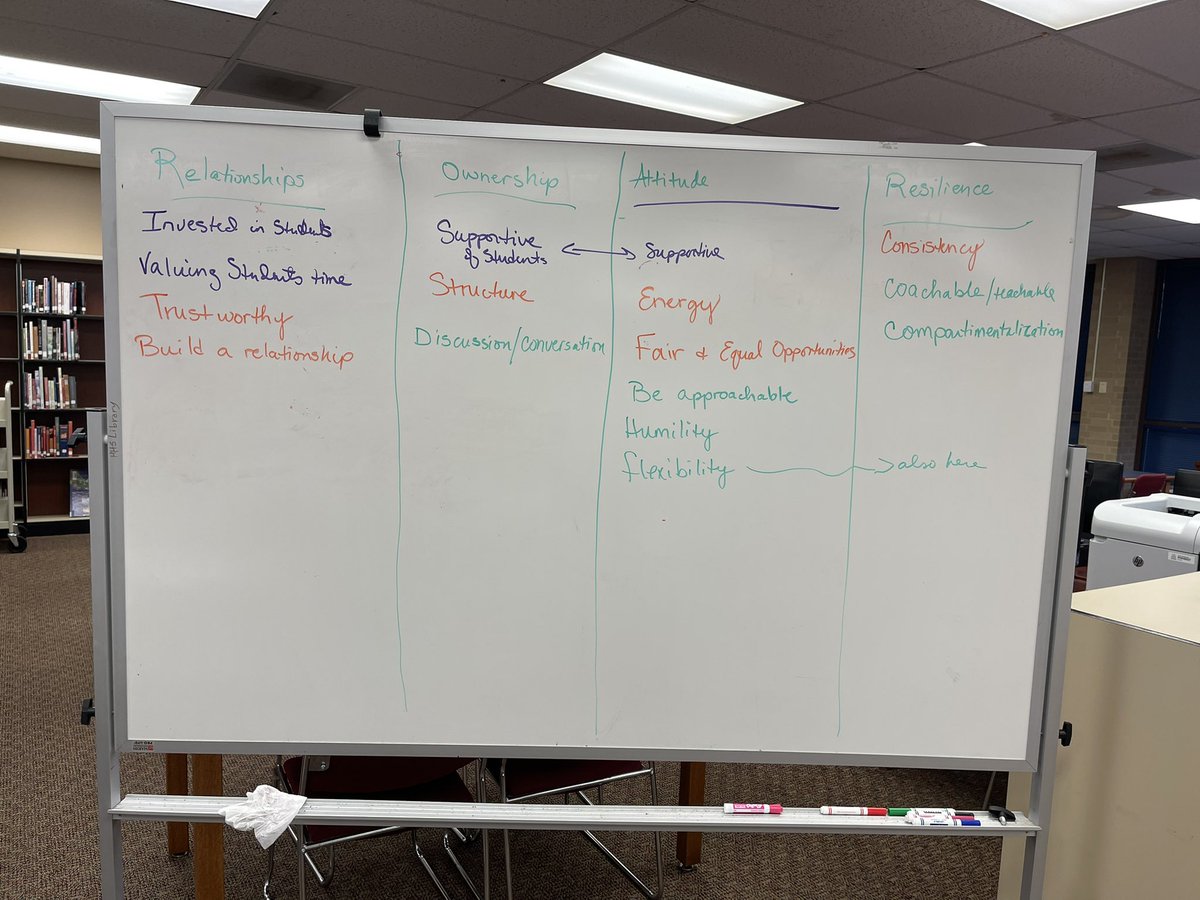 Relationships
Invested in Students
Valuing Students time
Trustworthy
Build a relationship
Ownership
Supportive
of Students
Structure
Discussion/conversation
Attitude
Supportive
Energy
Fair & Equal Opportunities
Be approachable
Humility
flexibility
Resilience
Consistency
Coachable/teachable
Compartimentalization
also here
HHS Library
hp